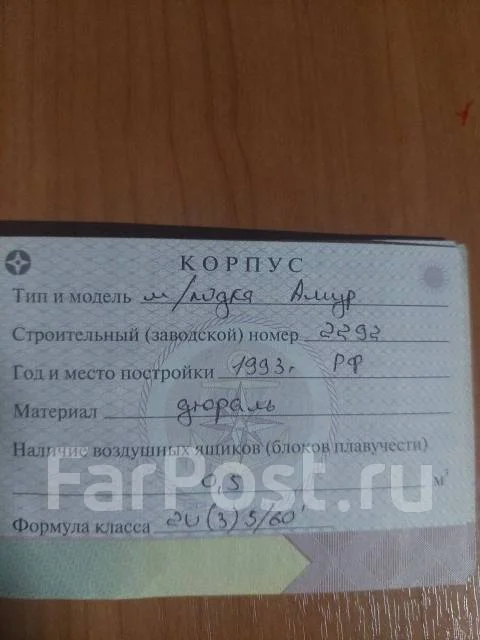 КОРПУС
Тип и модель м/лодка Амур
Строительный (заводской) номер 2292
Год и место постройки 1993г. РФ
Материал дюраль
Наличие воздушных ящиков (блоков плавучести)
0,5 м³
FarPost.ru
Формула класса